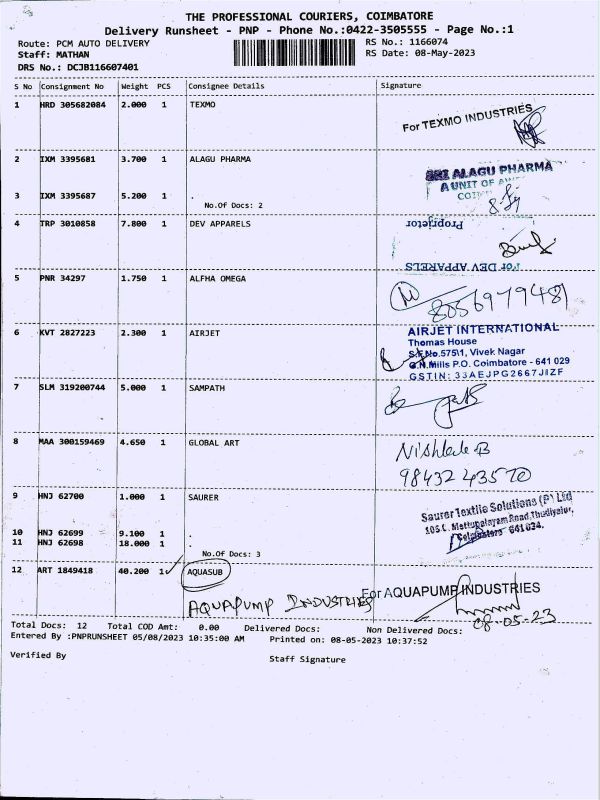 THE PROFESSIONAL COURIERS, COIMBATORE
Delivery Runsheet - PNP - Phone No.:0422-3505555 - Page No.:1
Route: PCM AUTO DELIVERY RS No.: 1166074
Staff: MATHAN RS Date: 08-May-2023
DRS No.: DCJB116607401
S No Consignment No Weight PCS Consignee Details Signature
1 HRD 305682084 2.000 1 TEXMO
For TEXMO INDUSTRIES
2 IXM 3395681 3.700 1 ALAGU PHARMA
SRI ALAGU PHARMA
A UNIT OF
3 IXM 3395687 5.200 1 .
No.Of Docs: 2
4 TRP 3010858 7.800 1 DEV APPARELS
Proprietor
For DEV APPARELS
5 PNR 34297 1.750 1 ALFHA OMEGA
8056979481
6 KVT 2827223 2.300 1 AIRJET
AIRJET INTERNATIONAL
Thomas House
S.F.No.575\1, Vivek Nagar
G.N.Mills P.O. Coimbatore - 641 029
GSTIN: 33AEJPG2667JIZF
7 SLM 319200744 5.000 1 SAMPATH
8 MAA 300159469 4.650 1 GLOBAL ART
98432 43570
9 HNJ 62700 1.000 1 SAURER
Saurer Textile Solutions (P) Ltd
105 C, Mettupalayam Road, Thudiyalur,
Coimbatore 641 034.
10 HNJ 62699 9.100 1 .
11 HNJ 62698 18.000 1 .
No.Of Docs: 3
12 ART 1849418 40.200 1 AQUASUB
AQUAPUMP INDUSTRIES
For AQUAPUMP INDUSTRIES
08-05-23
Total Docs: 12 Total COD Amt: 0.00 Delivered Docs: Non Delivered Docs:
Entered By :PNPRUNSHEET 05/08/2023 10:35:00 AM Printed on: 08-05-2023 10:37:52
Verified By Staff Signature